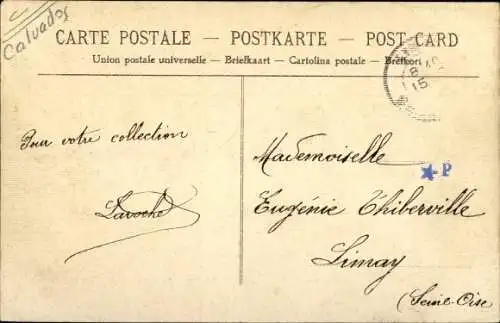 Calvados
CARTE POSTALE – POSTKARTE – POST-CARD
Union postale universelle – Briefkaart – Cartolina postale – Brefkort
8
15
Pour votre collection
Laroche
Mademoiselle
P
Eugénie Thiberville
Limay
(Seine-Oise